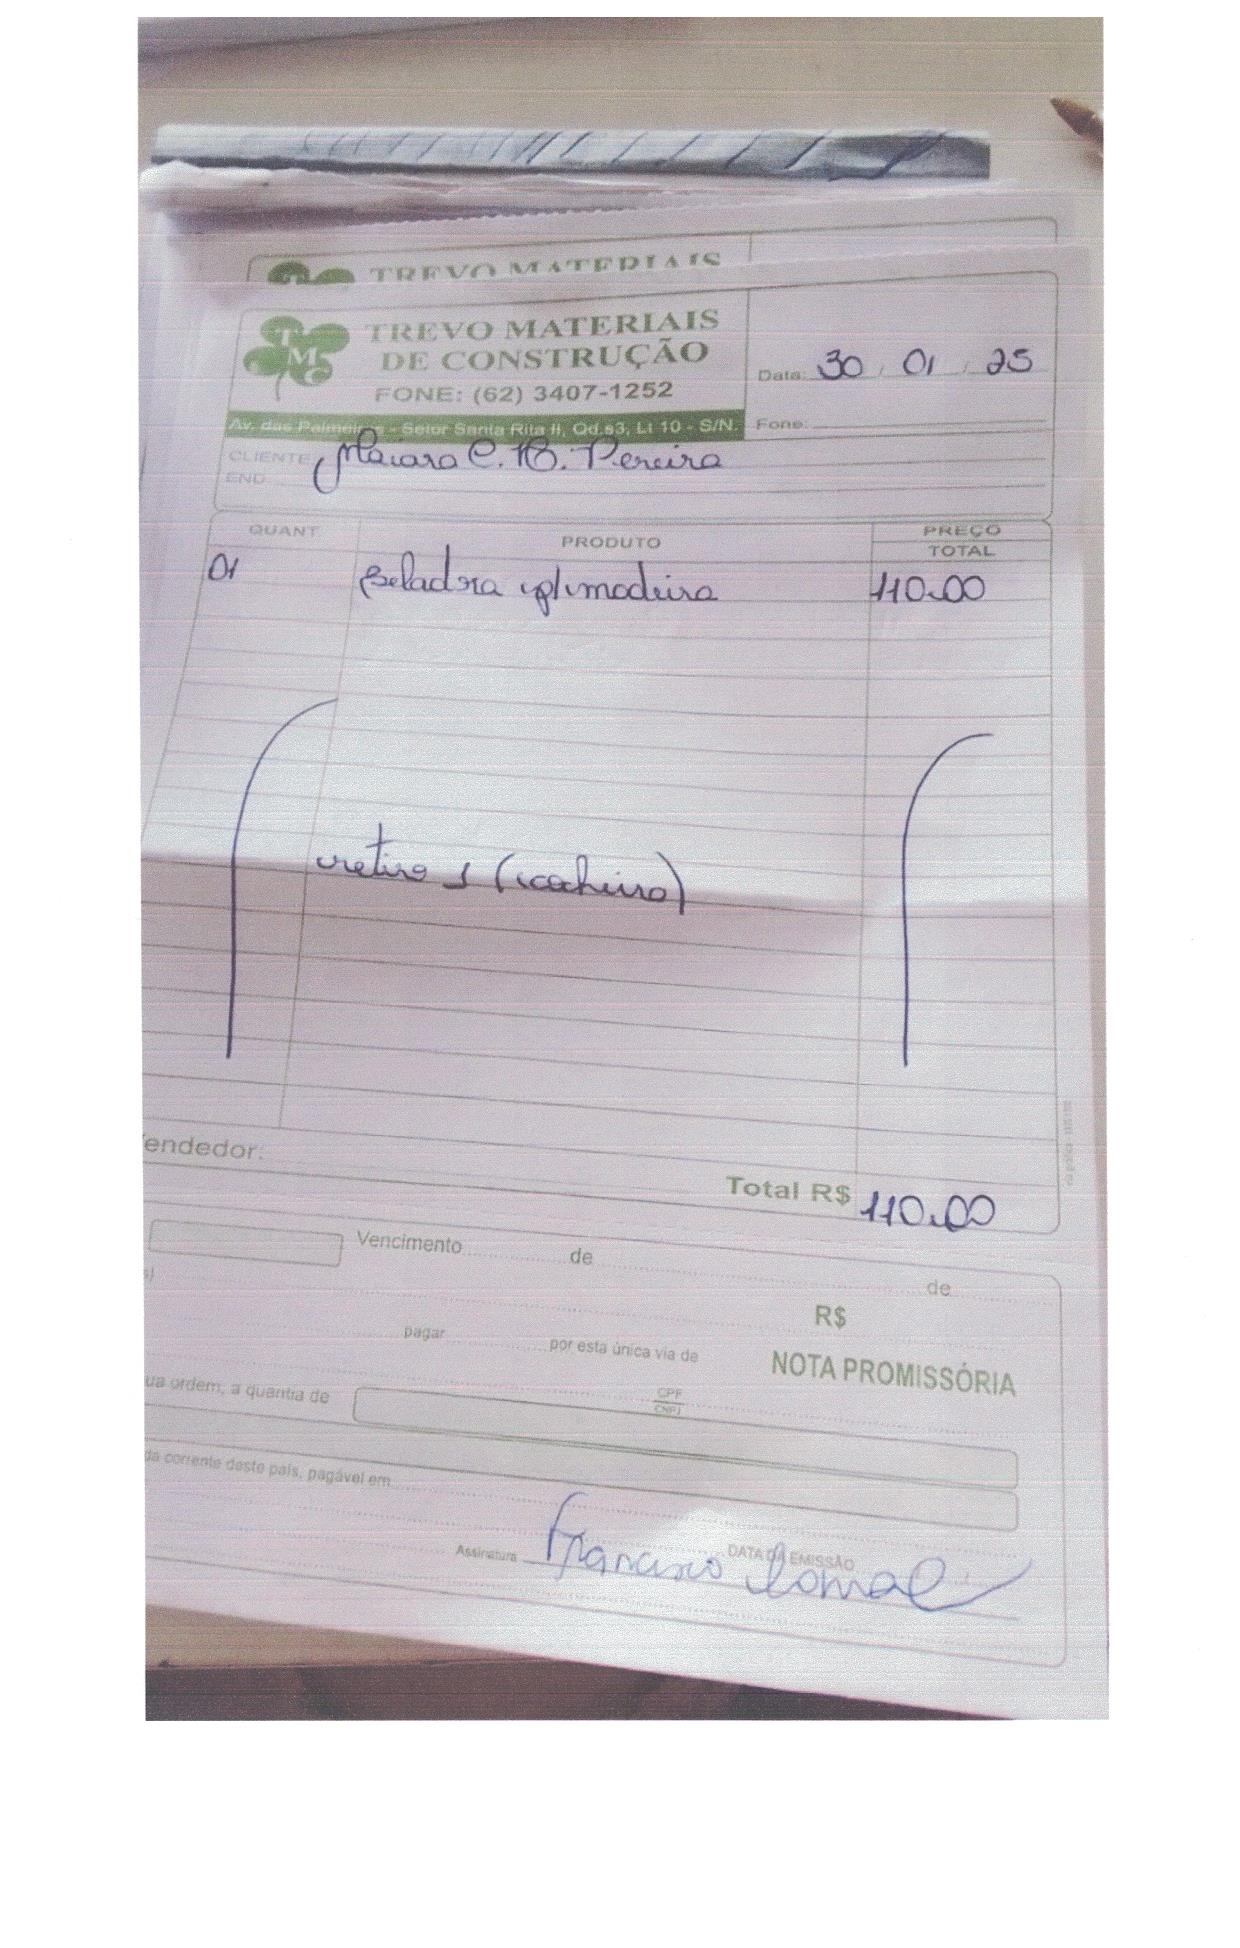 TREVO MATERIAIS
TMC
TREVO MATERIAIS
DE CONSTRUÇÃO
FONE: (62) 3407-1252
Data: 30 01 25
Av. das Palmeiras - Setor Santa Rita II, Qd.s3, Lt 10 - S/N.
Fone:
CLIENTE Maiara C. B. Pereira
END
QUANT. PRODUTO PREÇO
TOTAL
01 Seladora p/ madeira 110,00
retiro 1 (cocheira)
endedor:
Total R$ 110,00
Vencimento de de
s)
R$
pagar por esta única via de
NOTA PROMISSÓRIA
ua ordem, a quantia de
CPF
CNPJ
da corrente deste país, pagável em
DATA DA EMISSÃO
Assinatura Francisco